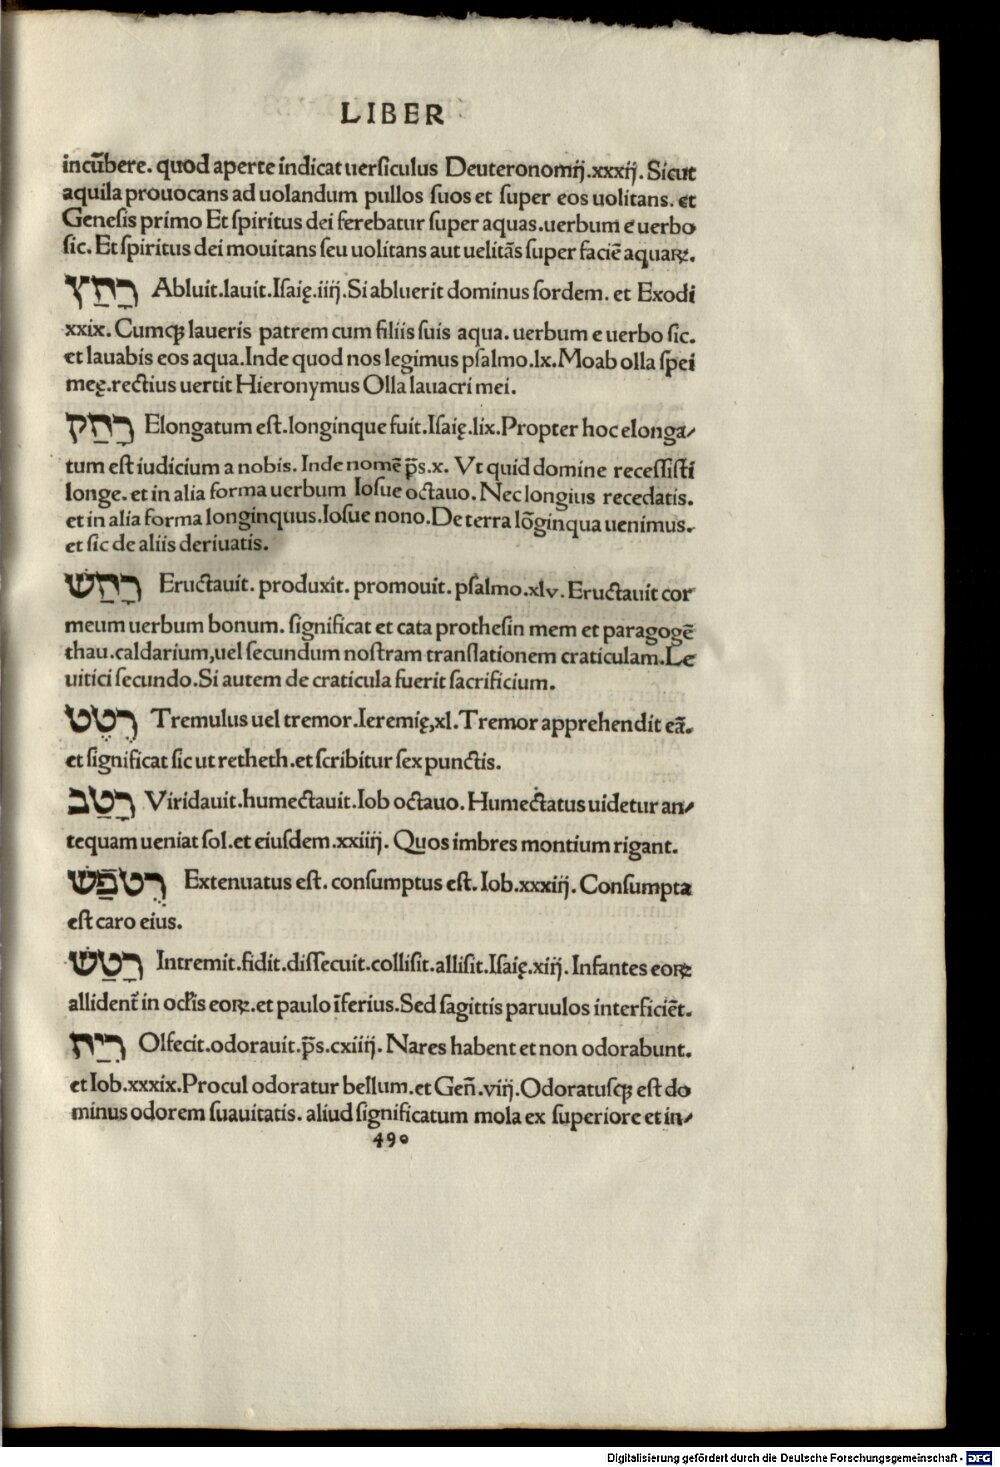 LIBER
incūbere. quod aperte indicat uersiculus Deuteronomij.xxxij. Sicut
aquila prouocans ad uolandum pullos suos et super eos uolitans. et
Genesis primo Et spiritus dei ferebatur super aquas.uerbum e uerbo
sic. Et spiritus dei mouitans seu uolitans aut uelitās super faciē aquaꝝ.
רָחַץ Abluit.lauit.Isaię.iiij.Si abluerit dominus sordem. et Exodi
xxix. Cumqꝫ laueris patrem cum filiis suis aqua. uerbum e uerbo sic.
et lauabis eos aqua.Inde quod nos legimus psalmo.lx.Moab olla spei
meę.rectius uertit Hieronymus Olla lauacri mei.
רָחַק Elongatum est.longinque fuit.Isaię.lix.Propter hoc elonga⸗
tum est iudicium a nobis. Inde nomē p̄s.x. Vt quid domine recessisti
longe. et in alia forma uerbum Iosue octauo. Nec longius recedatis.
et in alia forma longinquus.Iosue nono.De terra lōginqua uenimus.
et sic de aliis deriuatis.
רָחַשׁ Eructauit. produxit. promouit. psalmo.xlv. Eructauit cor
meum uerbum bonum. significat et cata prothesin mem et paragogē
thau.caldarium,uel secundum nostram translationem craticulam.Le
uitici secundo.Si autem de craticula fuerit sacrificium.
רֶטֶט Tremulus uel tremor.Ieremię,xl.Tremor apprehendit eā.
et significat sic ut retheth.et scribitur sex punctis.
רָטַב Viridauit.humectauit.Iob octauo. Humectatus uidetur an⸗
tequam ueniat sol.et eiusdem.xxiiij. Quos imbres montium rigant.
רֻטֲפַּשׁ Extenuatus est. consumptus est. Iob.xxxiij. Consumpta
est caro eius.
רָטַשׁ Intremit.fidit.dissecuit.collisit.allisit.Isaię.xiij. Infantes eoꝝ
allident̄ in ocl̄is eoꝝ.et paulo īferius.Sed sagittis paruulos interficiēt.
רִיַח Olfecit.odorauit.p̄s.cxiiij. Nares habent et non odorabunt.
et Iob.xxxix.Procul odoratur bellum.et Gen̄.viij.Odoratusqꝫ est do
minus odorem suauitatis. aliud significatum mola ex superiore et in⸗
490
Digitalisierung gefördert durch die Deutsche Forschungsgemeinschaft - DFG